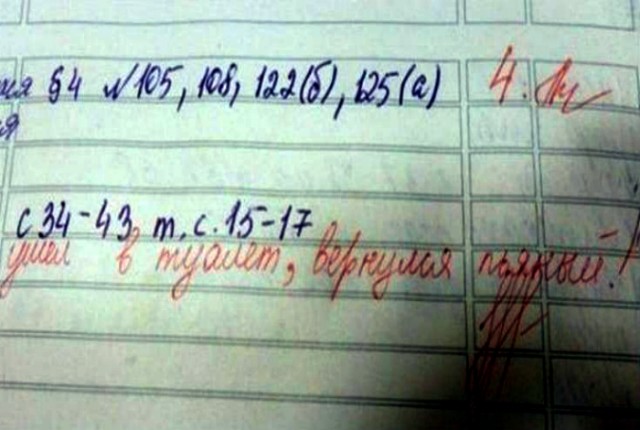 ия §4 №105, 108, 122(б), 125(а) 4.
я
с 34-43, т. с. 15-17
ушел в туалет, вернулся пьяный!